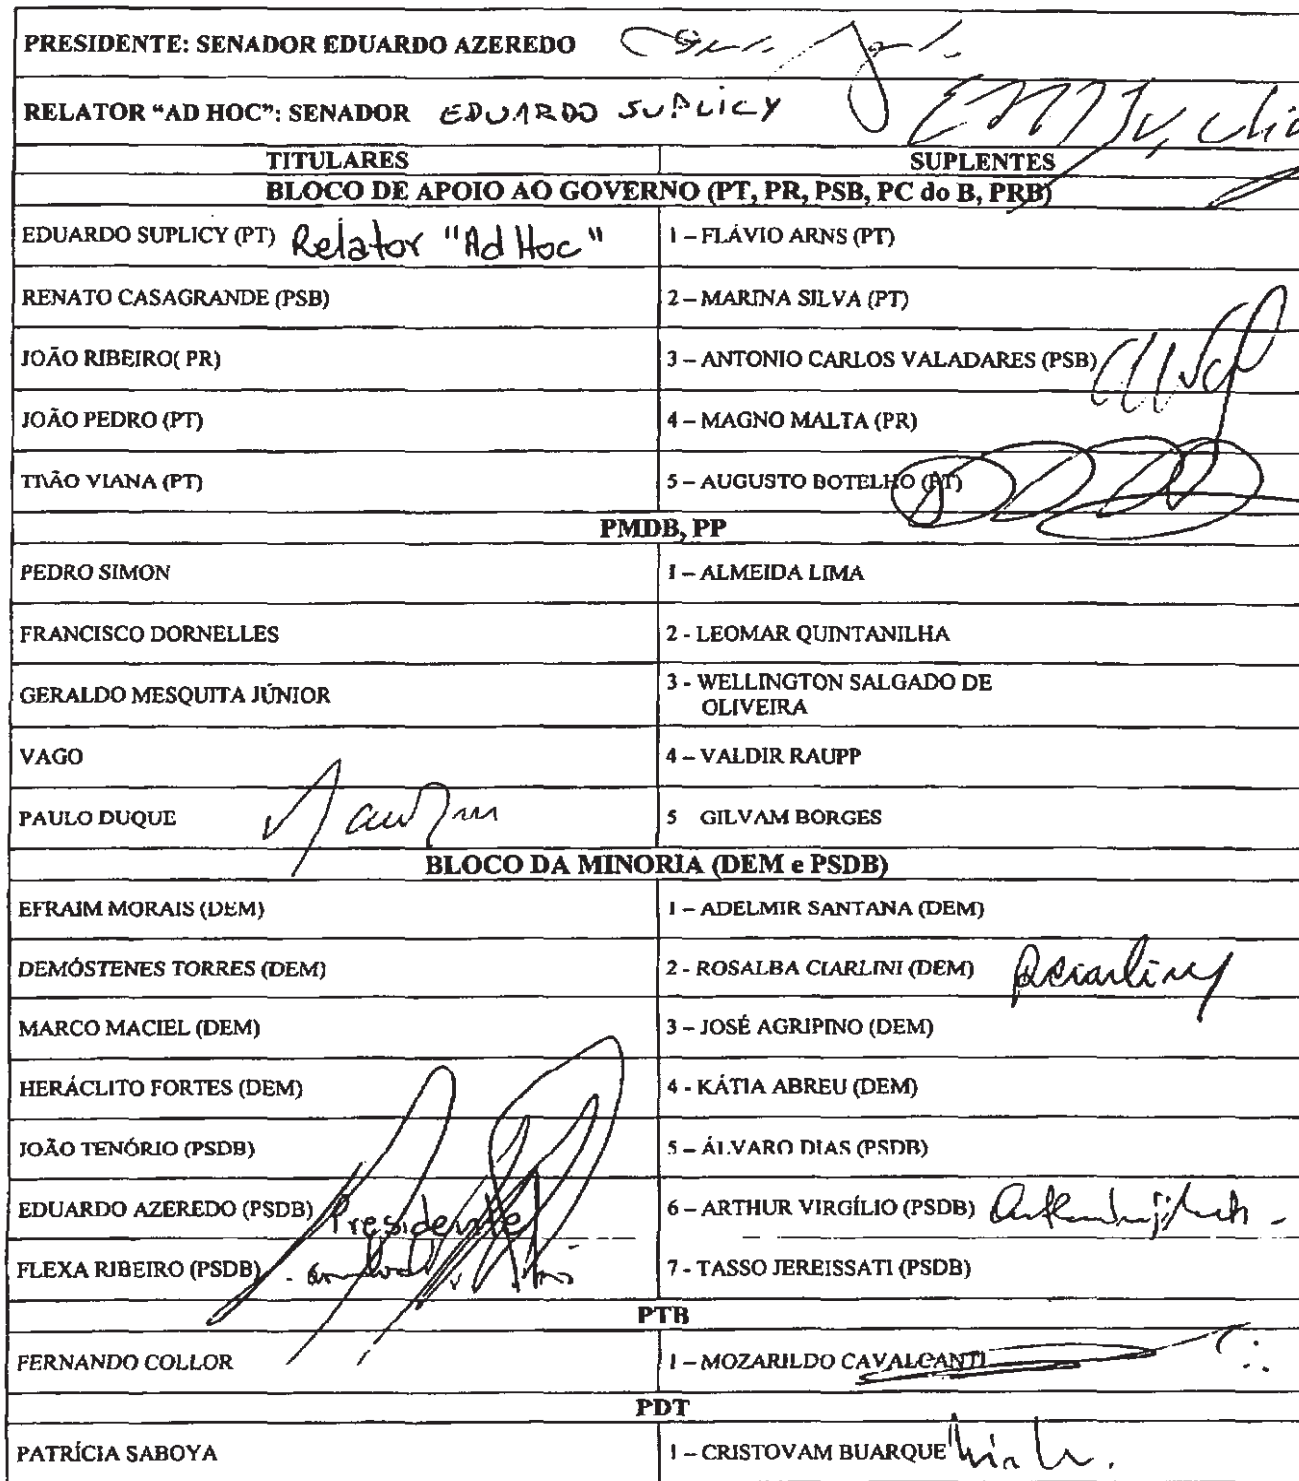 PRESIDENTE: SENADOR EDUARDO AZEREDO
RELATOR “AD HOC”: SENADOR EDUARDO SUPLICY
TITULARES SUPLENTES
BLOCO DE APOIO AO GOVERNO (PT, PR, PSB, PC do B, PRB)
EDUARDO SUPLICY (PT) Relator "Ad Hoc" 1 – FLÁVIO ARNS (PT)
RENATO CASAGRANDE (PSB) 2 – MARINA SILVA (PT)
JOÃO RIBEIRO( PR) 3 – ANTONIO CARLOS VALADARES (PSB)
JOÃO PEDRO (PT) 4 – MAGNO MALTA (PR)
TIÃO VIANA (PT) 5 – AUGUSTO BOTELHO (PT)
PMDB, PP
PEDRO SIMON 1 – ALMEIDA LIMA
FRANCISCO DORNELLES 2 - LEOMAR QUINTANILHA
GERALDO MESQUITA JÚNIOR 3 - WELLINGTON SALGADO DE
OLIVEIRA
VAGO 4 – VALDIR RAUPP
PAULO DUQUE 5 GILVAM BORGES
BLOCO DA MINORIA (DEM e PSDB)
EFRAIM MORAIS (DEM) 1 – ADELMIR SANTANA (DEM)
DEMÓSTENES TORRES (DEM) 2 - ROSALBA CIARLINI (DEM)
MARCO MACIEL (DEM) 3 – JOSÉ AGRIPINO (DEM)
HERÁCLITO FORTES (DEM) 4 - KÁTIA ABREU (DEM)
JOÃO TENÓRIO (PSDB) 5 – ÁLVARO DIAS (PSDB)
EDUARDO AZEREDO (PSDB) Presidente 6 – ARTHUR VIRGÍLIO (PSDB)
FLEXA RIBEIRO (PSDB) 7 - TASSO JEREISSATI (PSDB)
PTB
FERNANDO COLLOR 1 – MOZARILDO CAVALCANTI
PDT
PATRÍCIA SABOYA 1 – CRISTOVAM BUARQUE